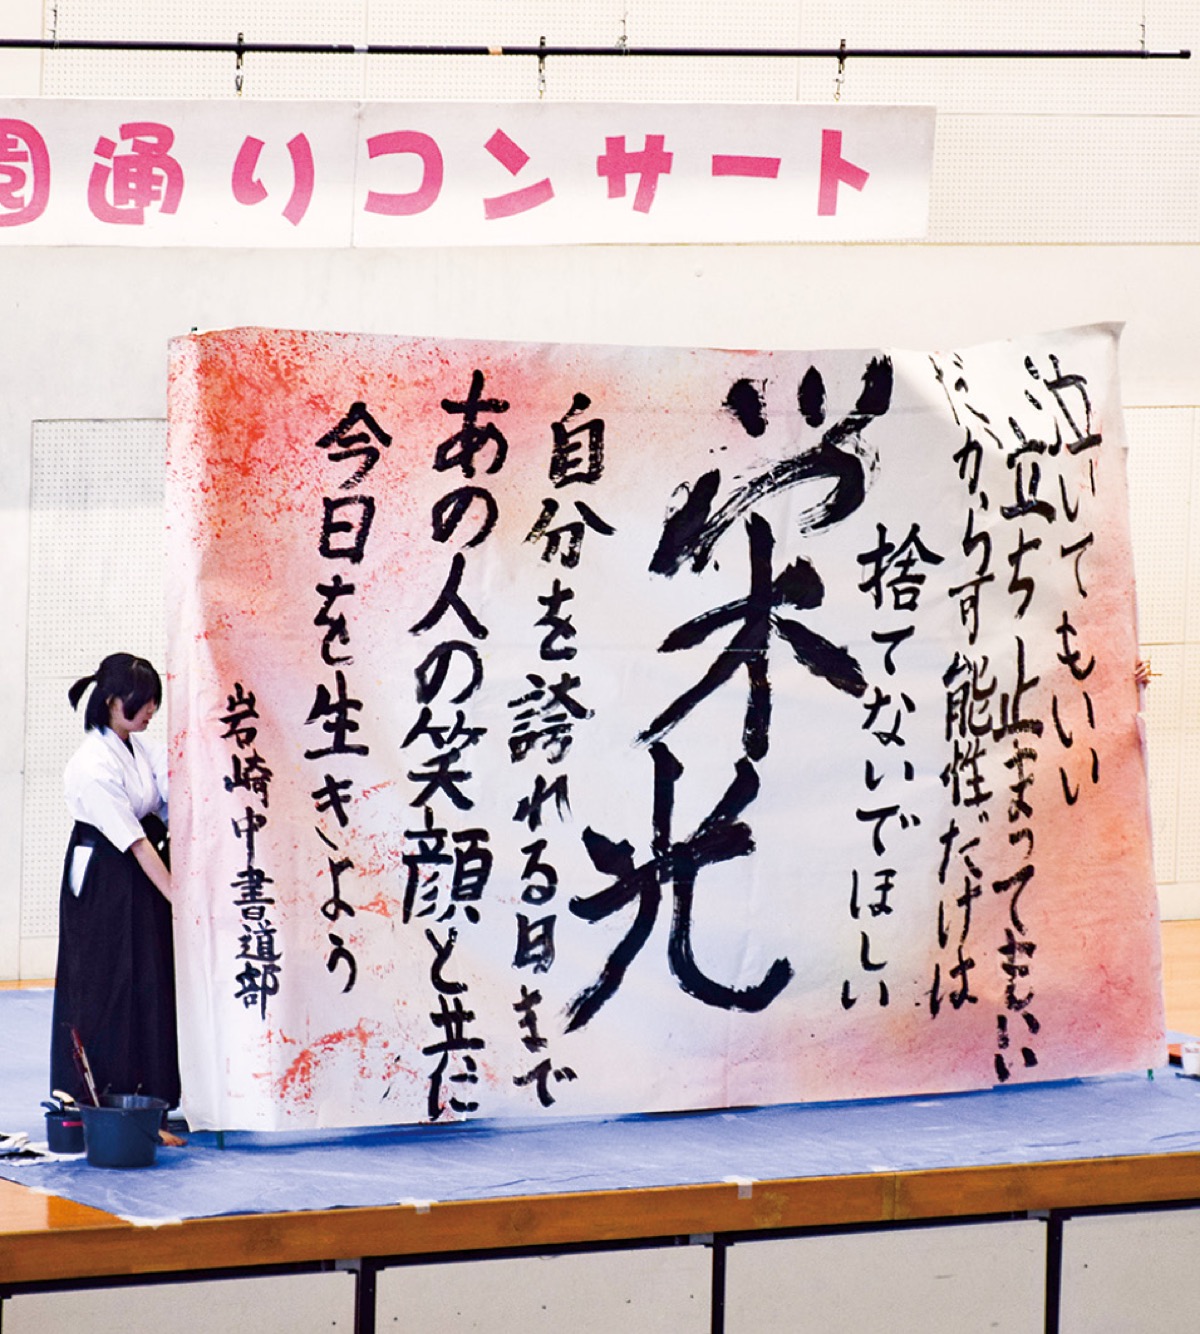 園通りコンサート
泣いてもいい
立ち止まってもいい
だから可能性だけは
捨てないでほしい
栄光
自分を誇れる日まで
あの人の笑顔と共に
今日を生きよう
岩崎中書道部